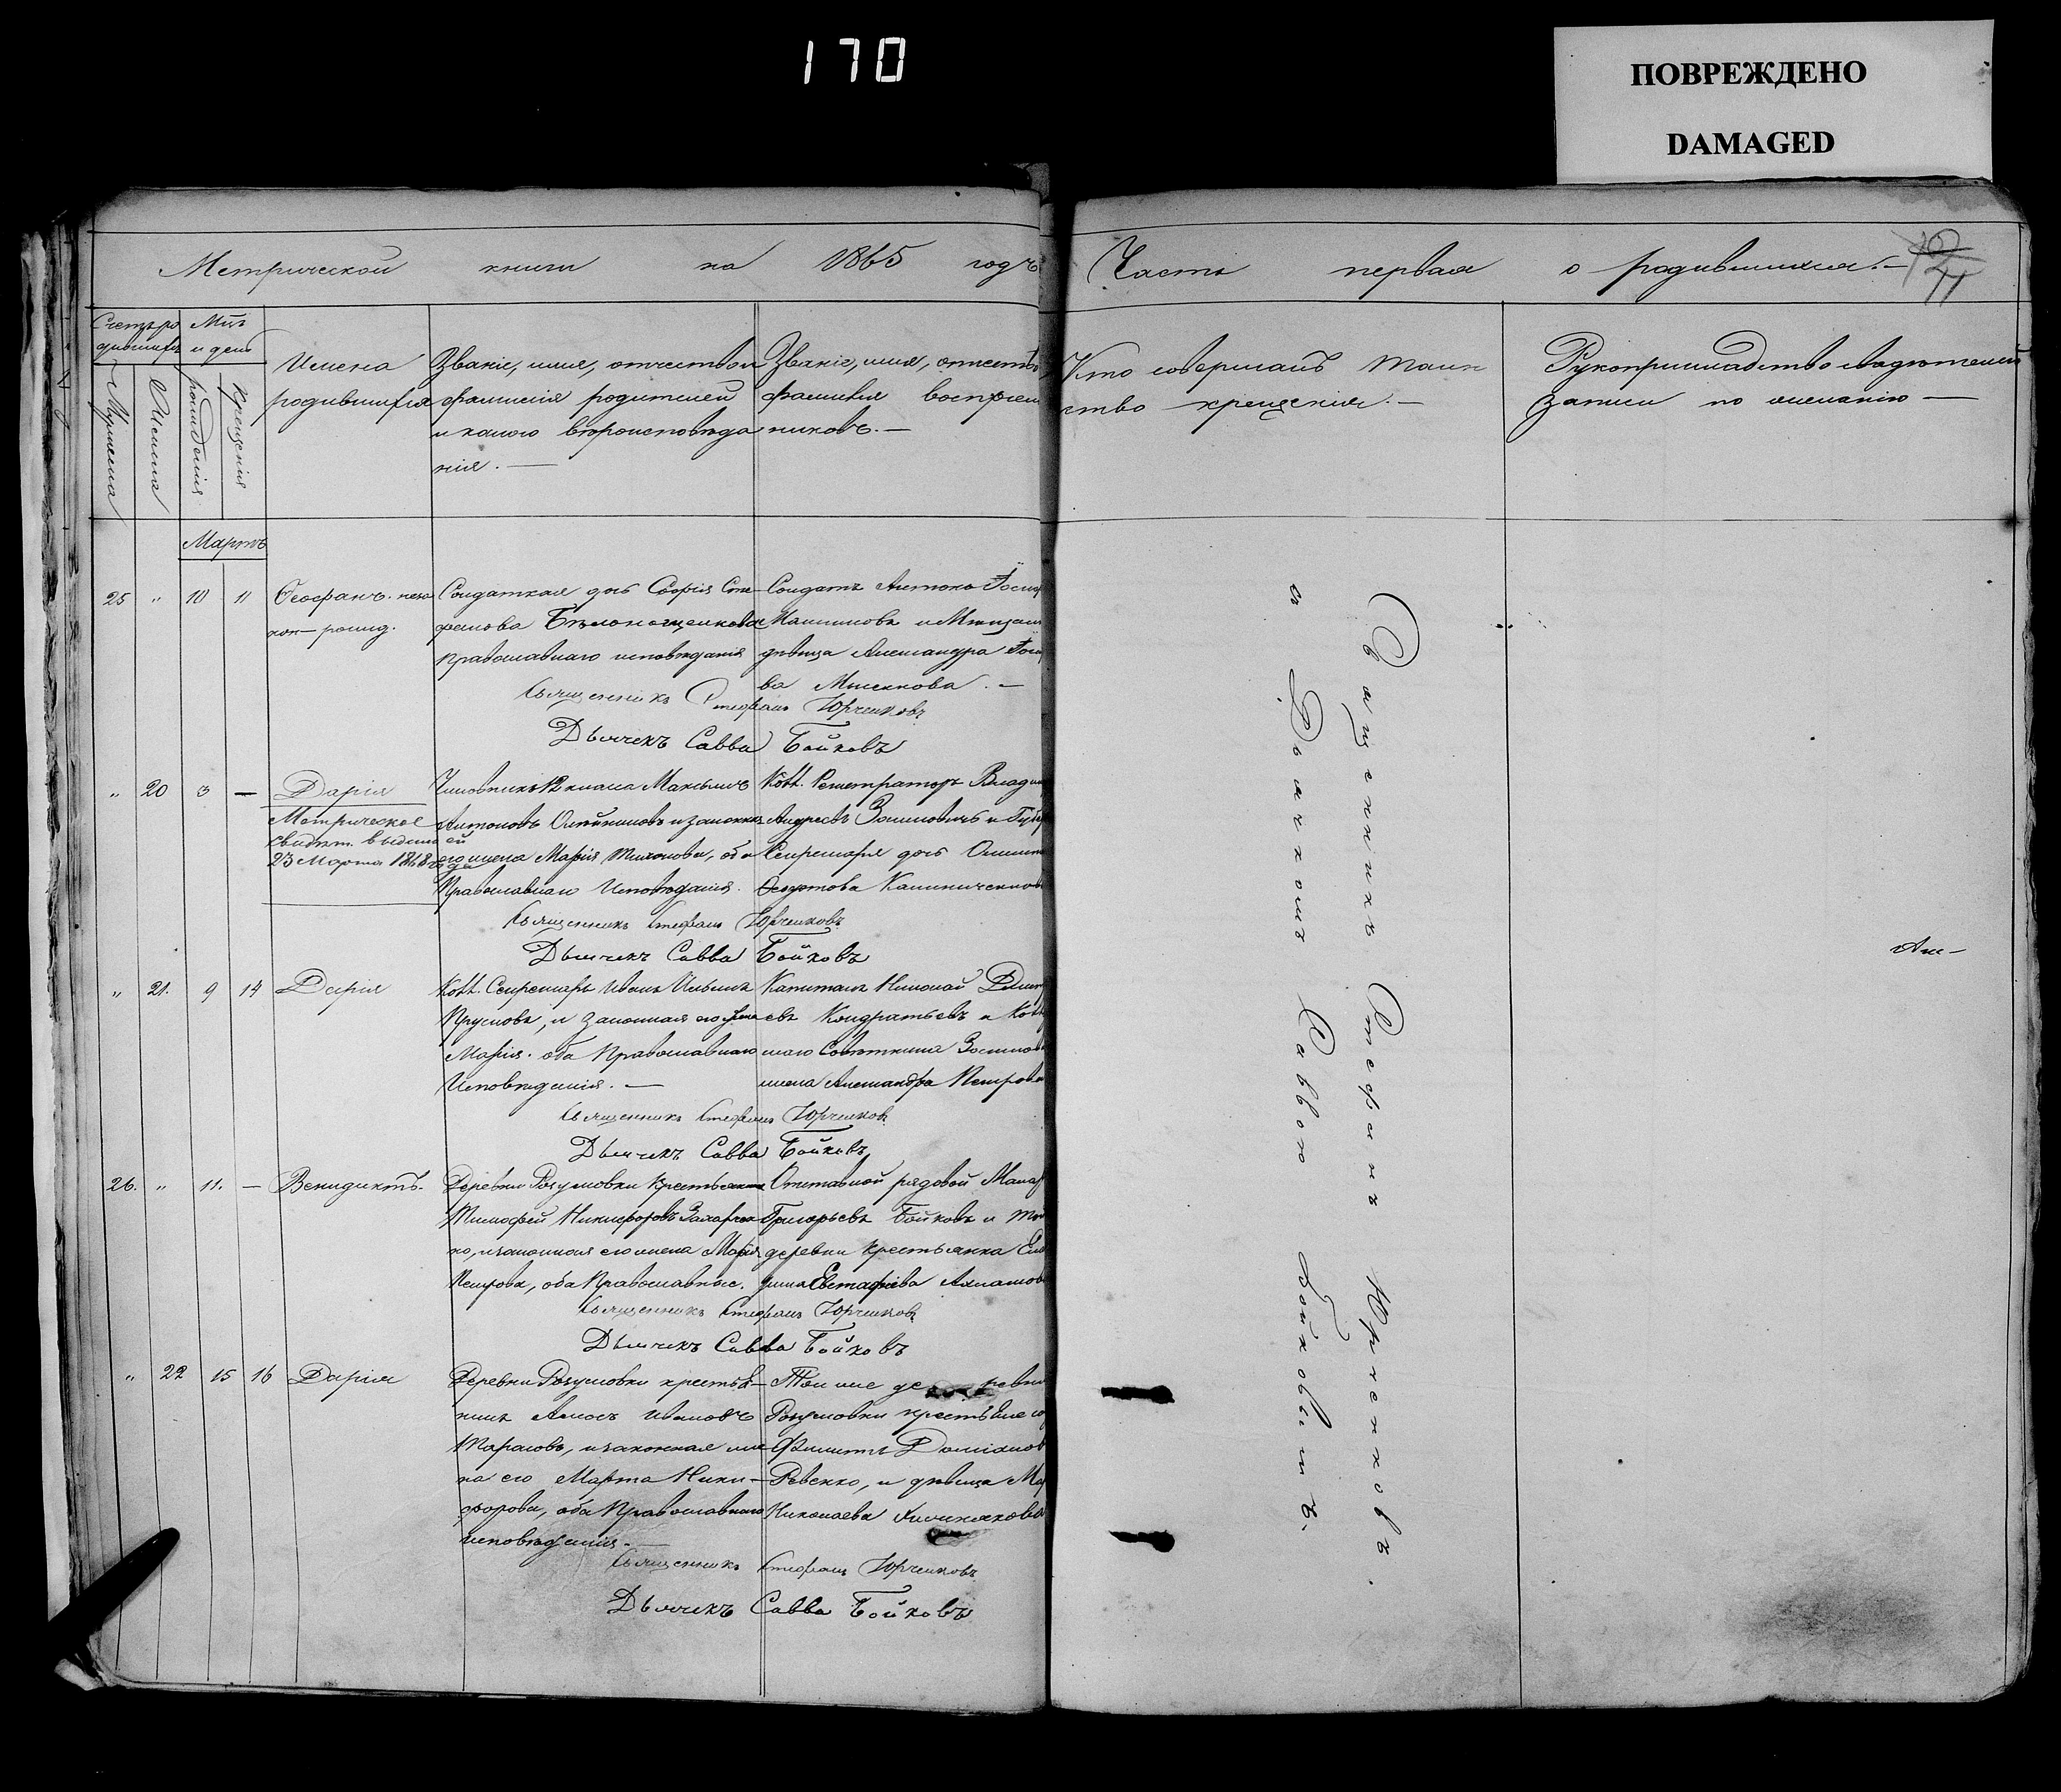 170
ПОВРЕЖДЕНО
DAMAGED
Метрической книги на 1865 годъ
Часть первая о родившихся.—
Счетъ ро
Мцъ
и день
Мужеска
Женска
рожденія
Крещенія
Имена
родившихся
Званіе, имя, отчество и
фамилія родителей
и какого вѣроисповѣда
нія.—
Званіе, имя, отчеств
фамилія воспріем
никовъ.—
Кто совершалъ Таин
ство крещенія.—
Рукоприкладство свидѣтелей
записи по желанію—
Мартъ
25 „ 10 11
Ѳеофанъ. неза
кон— рожд.
Солдатская дочь Софія Сте
фанова Бѣлоногщенкова
Православнаго исповѣданія
Солдатъ Антонъ
дѣвица Александра
ва
Священникъ Стефанъ Юрченковъ
Дьячекъ Савва Бойковъ
„ 20 3 —
Дарія
Метрическое
свидѣт. выдано ей
23 Марта 1868 года
Чиновникъ 12 класса Максимъ
Антоновъ Олейниковъ и законная
его жена Марія Тихонова, оба
Православнаго Исповѣданія.
Колл. Регистраторъ Влади
Андреевъ Зосимовичъ и Губер
Секретаря дочь
Священникъ Стефанъ Юрченковъ
Дьячекъ Савва Бойковъ
„ 21. 9 14
Дарія
Колл. Секретарь Иванъ Ильинъ
Прусловъ, и законная его жена
Марія. оба Православнаго
Исповѣданія.—
Капитанъ Николай Дмит
евъ Кондратьевъ и Колл
скаго Совѣтника
жена Александра Петрова
Священникъ Стефанъ Юрченков
Дьячекъ Савва Бойковъ
26. „ 11. —
Венидиктъ.
Деревни Розумовки Крестьянинъ
Тимофей Никифоровъ Захарчен
ко, и законная его жена Марія
Петрова, оба Православные.
Отставной рядовой Макар
Григорьевъ Бойковъ и той
деревни Крестьянка
Евстафіева
Священникъ Стефанъ Юрченковъ
Дьячекъ Савва Бойковъ
„ 22 15 16
Дарія
Деревни Розумовки крестья—
нинъ Амосъ Ивановъ
Тарасовъ, и законная же
на его Марта Ники—
форова, оба Православнаго
исповѣданія.—
Той же де ревни
Розумовки крестьяне
Филиппъ Доміанов
Ревенко, и дѣвица
Николаева
Священникъ Стефанъ Юрченковъ
Дьячекъ Савва Бойковъ
Священникъ Стефанъ Юрченковъ.
съ Дьячкомъ Саввою Бойковымъ.